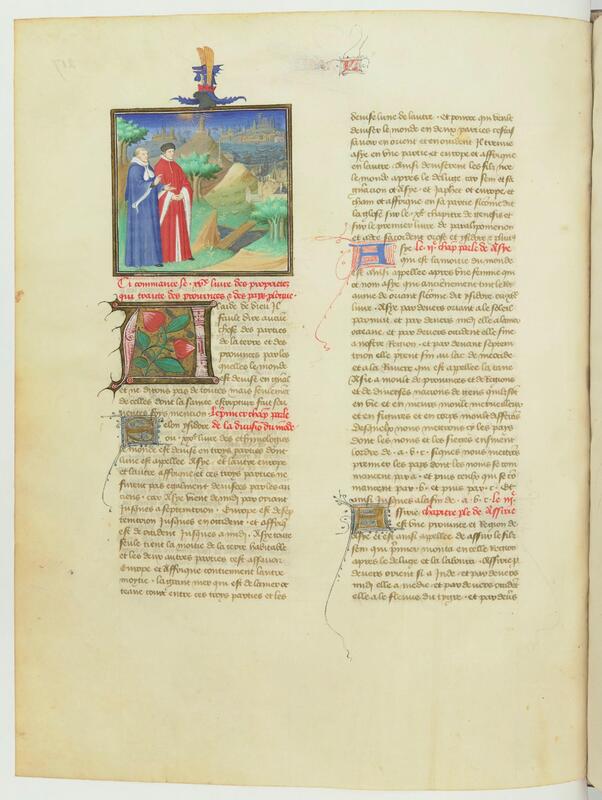 Ci commance le .xve. livre des proprietez
qui traite des provinces & des pays ploque
A l'aide de dieu Il
fault dire aucune
chose des parties
de la terre et des
provinces par les
quelles le monde
est devise en gnal
et ne dirons pas de toutes mais seulement
de celles dont la sainte escripture fait sou
mention Le premier chap parle
de la division du mode
Selon ysidore
ou .xve. livre des ethimologies
le monde est devise en troys parties dont
lune est appellee Asye . et lautre europe
et lautre affrique et ces troys parties ne
furent pas egalment devisees par les an
ciens . car Asye vient de midi par orient
Jusques a septemtrion . Europe est de sep
temtrion Jusques en occident . et affriq
est de occident Jusques a midi . Asye toute
seule tient la moitie de la terre habitable
et les deux autres parties cest assavoir
Europe et Affrique contiennent lautre
moytie . la grant mer qui est de la mer oc
ceane court entre ces troys parties et les
devise lune de lautre . et pource qui veult
deviser le monde en deux parties cest as
savoir en orient et en occident Il treuve
asye en une partie et europe et affrique
en lautre . Ainsi deviserent les filz noe
le monde apres le deluge car sem et sa
gnacion ot Asye . et Japhet ot europe . et
cham ot affrique en sa partie sicome dit
la glose sur le .xe. chapitre de genesis et
sur le premier livre de paralipomenon
et a ce sacordent orose et ysidore & plius
Asye Le .ije. chap parle de Asye
qui est la moitie du monde
est ainsi appellee apres une femme qui
ot nom asye qui anciennement tint le roy
aume de orient sicome dit ysidore ou .xve.
livre . Asye par devers orient a le soleil
par devers midi elle a la mer
occeane . et par devers occident elle fine
a nostre Region . et par devant septem
trion elle prent fin au lac de meotide
et a la Riviere qui est appellee la tane
Asie a moult de provinces et de Regions
et de diverses nacions de gens qui sont
en vie et en meurs moult merveilleux
et en figures et en corps moult differens
desquelz nous mettrons cy les pays
dont les noms et les siecles ensuient
lordre de . a . b . c . sicques nous mettrons
premier les pays dont les noms se com
mancent par a . et puis ceulx qui se co
mancent par . b . et puis par . c . et
ainsi Jusques a la fin de . a . b . c . le .iije.
chapitre ple de Assirie
Assirie
est une province et Region de
Asye et est ainsi appellee de assur le filz
sem qui premier monta en celle Region
apres le deluge et la laboura . Assirie p
devers orient si a Inde . et par devers
midi elle a medie . et par devers occident
elle a le fleuve du tygre . et par devers